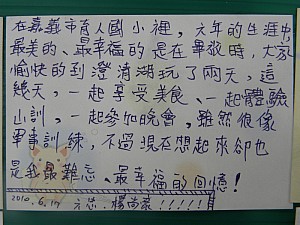 在嘉義市育人國小裡，六年的生涯中
最美的、最幸福的是在畢教時，大家
愉快的到澄清湖玩了兩天，這
幾天，一起享受美食、一起體驗
山訓，一起參加晚會，雖然很像
軍事訓練，不過現在想起來卻也
是我最難忘、最幸福的回憶！
2010.6.17 六忠 楊尚家！！！！！